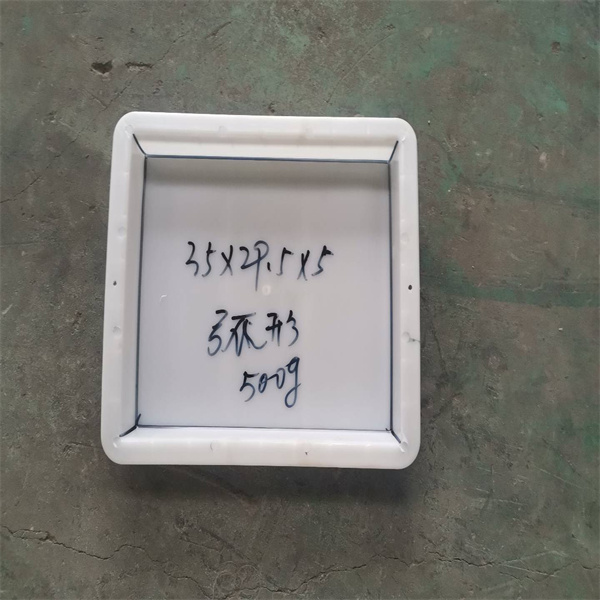 35×29.5×5
弧形
500g